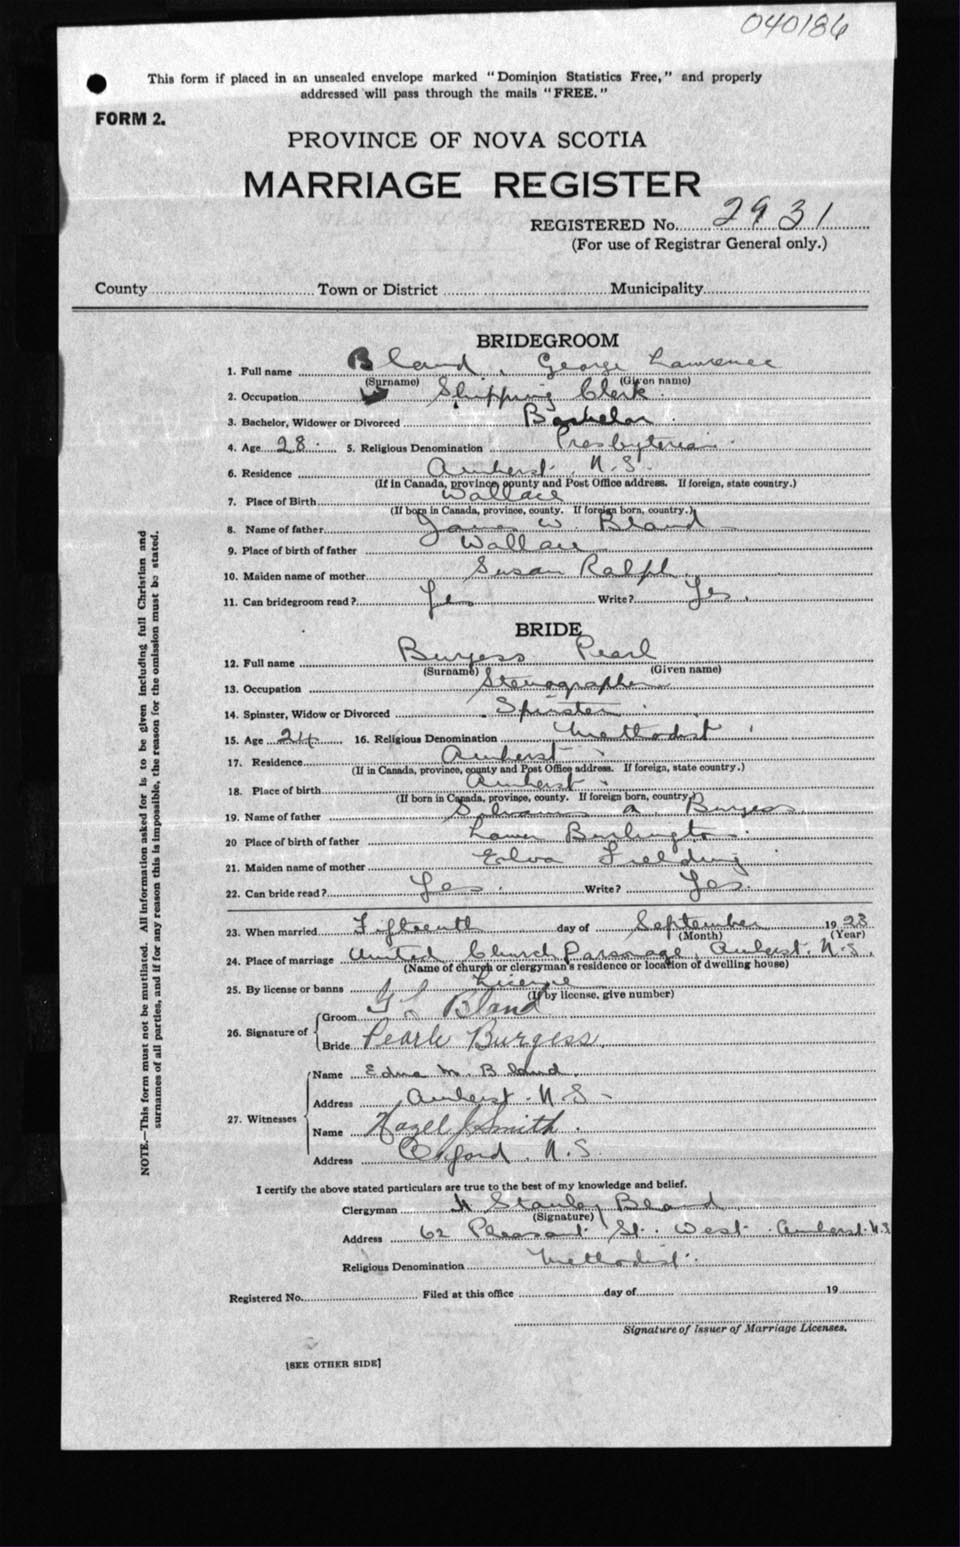 040186
This form if placed in an unsealed envelope marked "Dominion Statistics Free," and properly
addressed will pass through the mails "FREE."
FORM 2.
PROVINCE OF NOVA SCOTIA
MARRIAGE REGISTER
REGISTERED No. 2931
(For use of Registrar General only.)
County Town or District Municipality
BRIDEGROOM
1. Full name Bland, George Lawrence
(Surname) (Given name)
2. Occupation Shipping Clerk
3. Bachelor, Widower or Divorced Bachelor
4. Age 28 5. Religious Denomination Presbyterian
6. Residence Amherst, N.S.
(If in Canada, province, county and Post Office address. If foreign, state country.)
7. Place of Birth Wallace
(If born in Canada, province, county. If foreign born, country.)
8. Name of father James W. Bland
9. Place of birth of father Wallace
10. Maiden name of mother Susan Ralph
11. Can bridegroom read? Yes Write? Yes.
BRIDE
12. Full name Burgess Pearl
(Surname) (Given name)
13. Occupation Stenographer
14. Spinster, Widow or Divorced Spinster
15. Age 24 16. Religious Denomination Methodist
17. Residence Amherst
(If in Canada, province, county and Post Office address. If foreign, state country.)
18. Place of birth Amherst
(If born in Canada, province, county. If foreign born, country.)
19. Name of father A. Burgess
20 Place of birth of father Lower Burlington
21. Maiden name of mother Fielding
22. Can bride read? Yes. Write? Yes.
23. When married Fifteenth day of September 1923
(Month) (Year)
24. Place of marriage United Church Parsonage, Amherst. N.S.
(Name of church or clergyman's residence or location of dwelling house)
25. By license or banns License
(If by license, give number)
26. Signature of
Groom G L Bland
Bride Pearle Burgess
27. Witnesses
Name Edna M. Bland.
Address Amherst. N.S.
Name Hazel J Smith.
Address Oxford. N.S.
I certify the above stated particulars are true to the best of my knowledge and belief.
Clergyman Stanley Bland
(Signature)
Address 62 Pleasant St. West. Amherst. N.S
Religious Denomination Methodist.
Registered No. Filed at this office day of 19
Signature of Issuer of Marriage Licenses.
[SEE OTHER SIDE]
NOTE.—This form must not be mutilated. All information asked for is to be given including full Christian and
surnames of all parties, and if for any reason this is impossible, the reason for the omission must be stated.